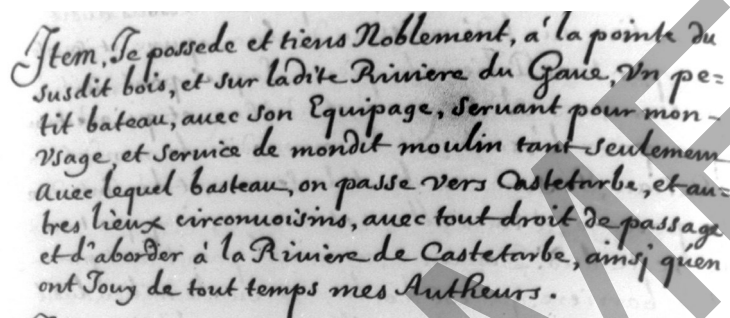 Item, Je possede et tiens Noblement, á la pointe du
susdit bois, et sur ladite Riviere du Gaue, Vn pe=
tit bateau, auec son Equipage, seruant pour mon-
vsage, et seruice de mondit moulin tant seulement
Auec lequel basteau, on passe vers Castetarbe, et au=
tres lieux circonuoisins, auec tout droit de passage
et d'aborder á la Riviere de Castetarbe, ainsj qu'en
ont Jouy de tout temps mes Autheurs.